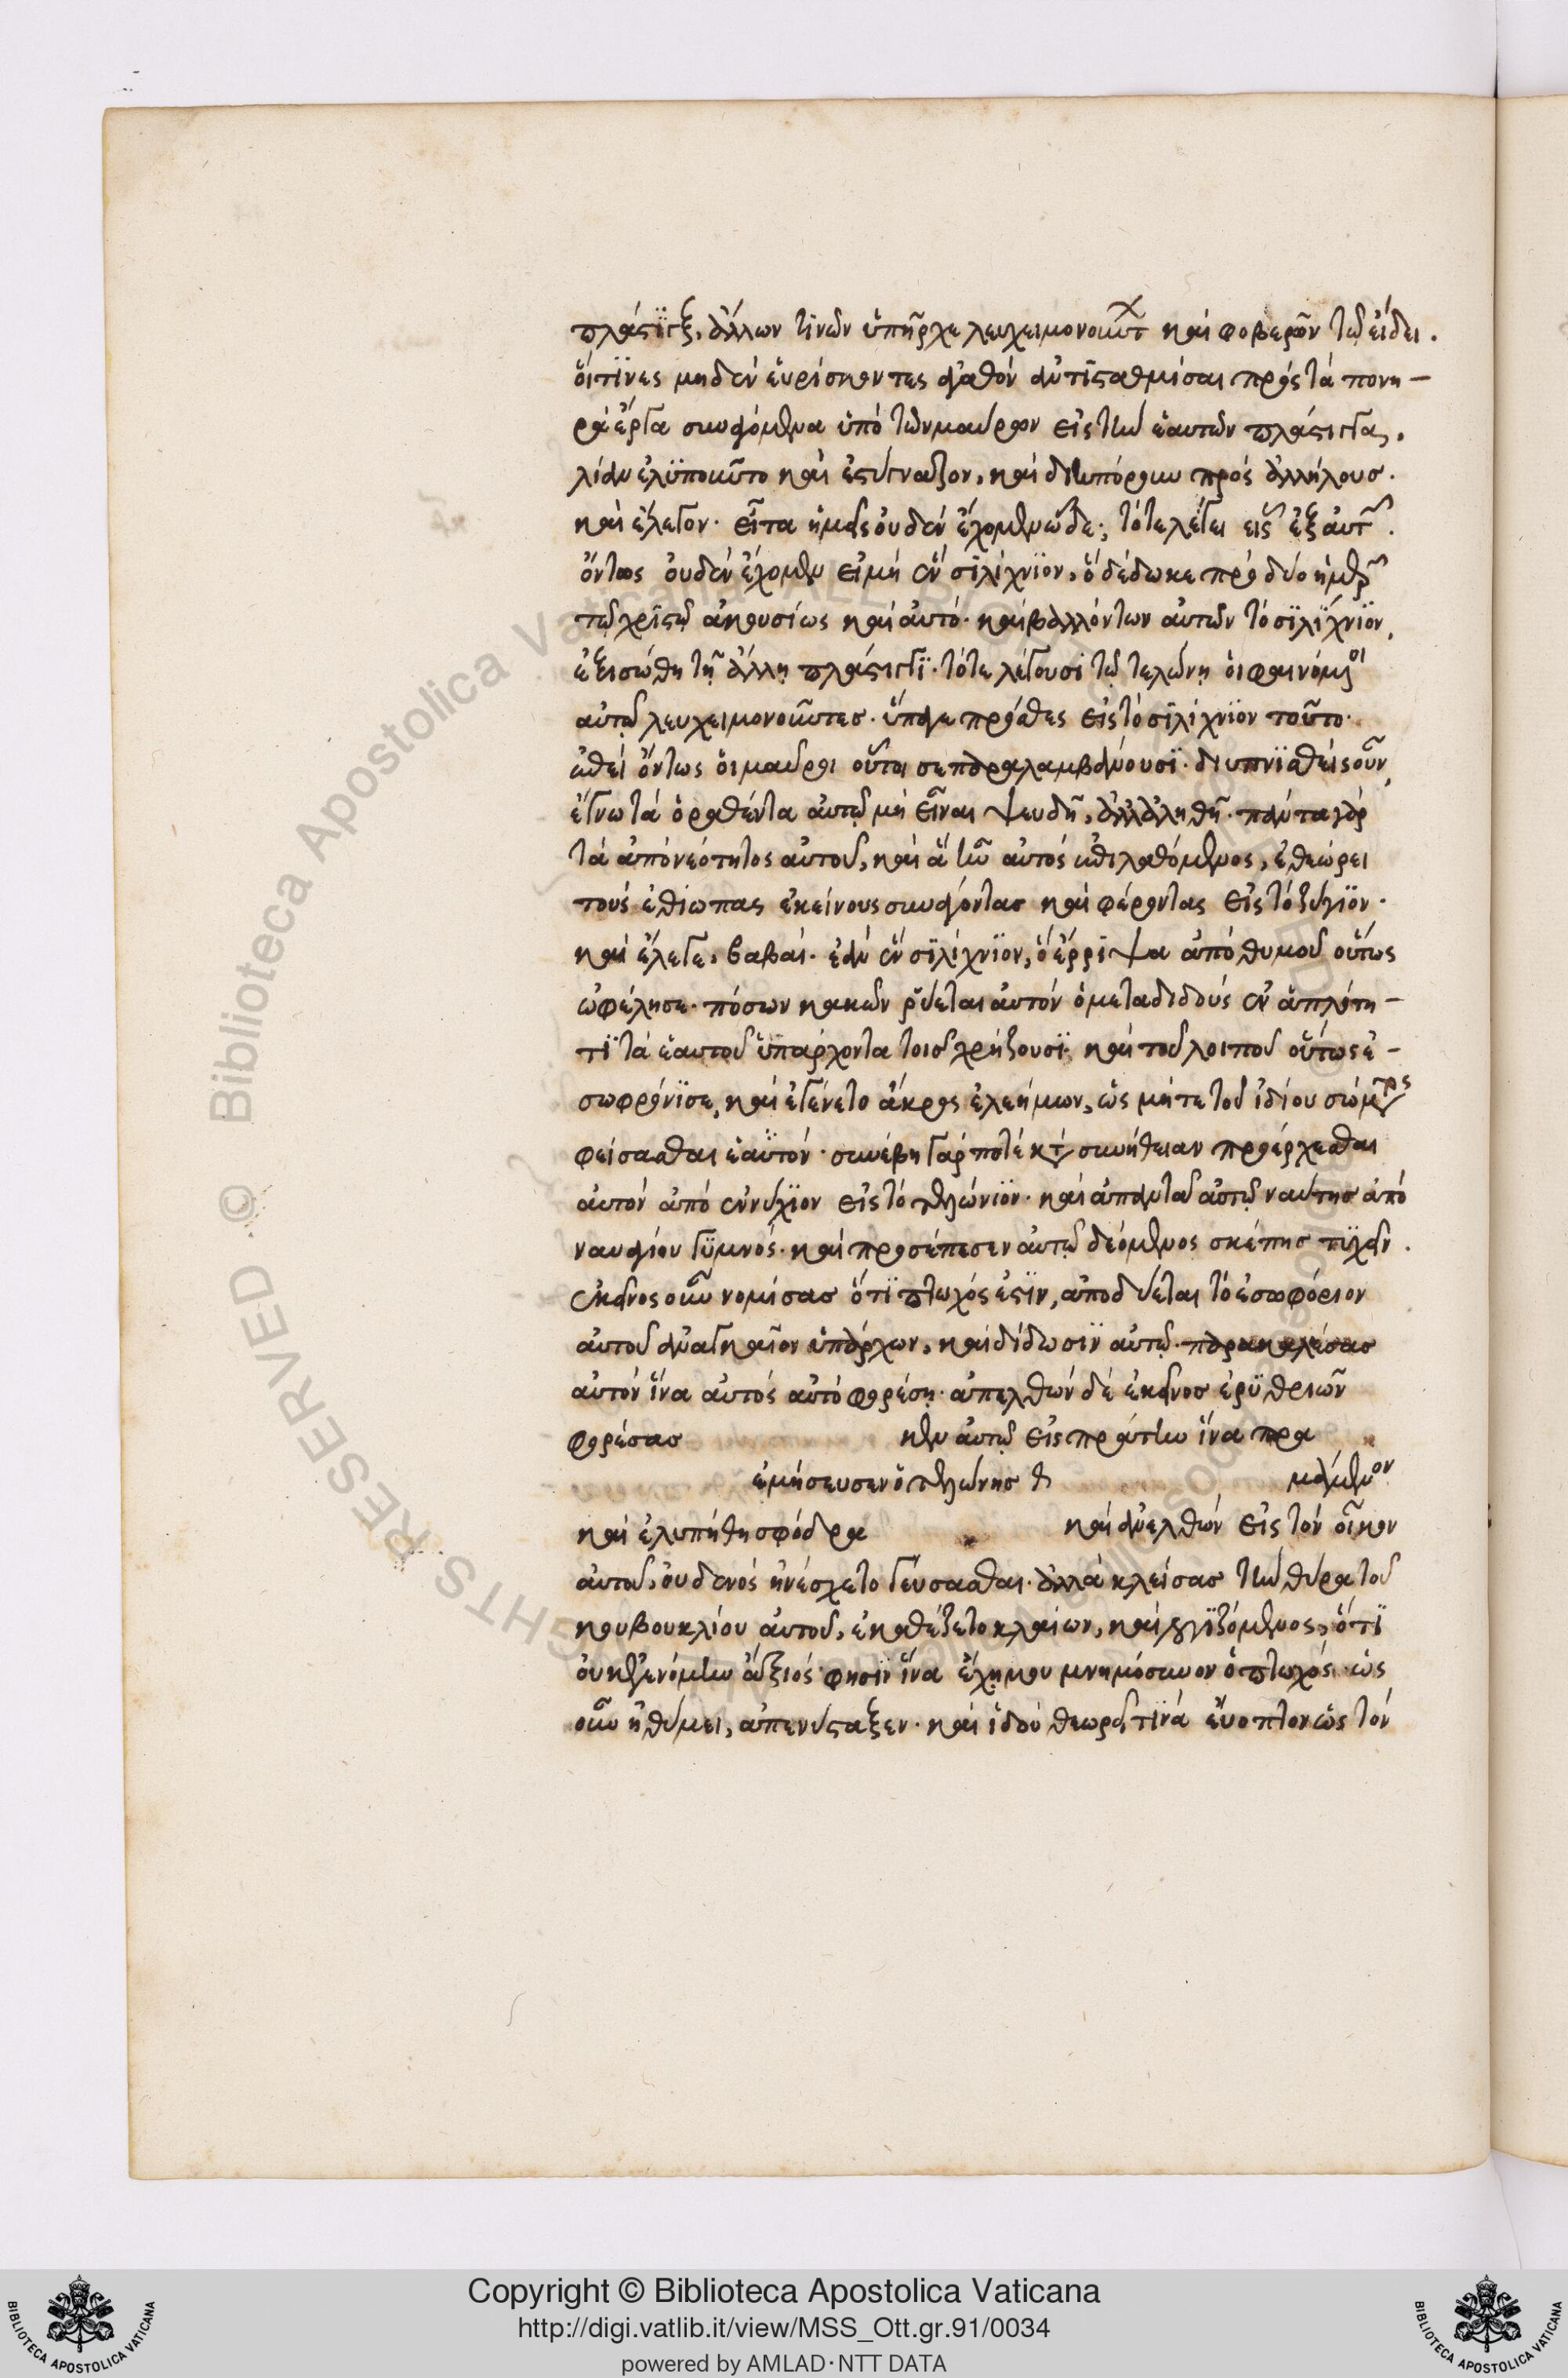 πλάστιγξ, ἄλλων τινῶν ὑπῆρχε λευχειμονούντ καὶ φοβερῶν τῷ εἴδει.
οἵτινες μηδὲν εὑρίσκοντες ἀγαθὸν ἀντισταθμίσαι πρὸς τὰ πονη-
ρὰ ἔργα συναγόμενα ὑπὸ τῶν μαύρων εἰς τὴν ἑαυτῶν πλάστιγγα,
λίαν ἐλυποῦντο καὶ ἐστύγναζον, καὶ διηπόρουν πρὸς ἀλλήλους.
καὶ ἔλεγον. εἶτα ἡμεῖς οὐδὲν ἔχομεν ὧδε; τότε λέγει εἷς ἐξ αὐτ.
ὄντως οὐδὲν ἔχομεν εἰμὴ ἓν σιλίγνιον, ὃ δέδωκε πρὸ δύο ἡμερ
τῷ χριστῷ ἀκουσίως καὶ αὐτό. καὶ βαλλόντων αὐτῶν τὸ σιλίγνιον,
ἐξισώθη τῇ ἄλλη πλάστιγγι. τότε λέγουσι τῷ τελώνη οἱ φαινόμενοι
αὐτῷ λευχειμονοῦντες. ὕπαγε πρόσθες εἰς τὸ σιλίγνιον τοῦτο.
ἐπεὶ ὄντως οἱ μαῦροι οὗτοι σε παραλαμβάνουσι. διυπνισθεὶς οὖν,
ἔγνω τὰ ὁραθέντα αὐτῷ μὴ εἶναι ψευδῆ, ἀλλ' ἀληθῆ. πάντα γὰρ
τὰ ἀπὸ νεότητος αὐτοῦ, καὶ ἃ ἦν αὐτὸς ἐπιλαθόμενος, ἐθεώρει
τοὺς ἐθίωπας ἐκείνους συναγόντας καὶ φέροντας εἰς τὸ ζύγιον.
καὶ ἔλεγε, βαβαί. ἐὰν ἓν σιλίγνιον, ὃ ἔρριψα ἀπὸ θυμοῦ οὕτως
ὠφέλησε. πόσων κακῶν ῥύεται αὐτὸν ὁ μεταδιδοὺς ἐν ἁπλότη-
τι τὰ ἑαυτοῦ ὑπάρχοντα τοῖς χρήζουσι. καὶ τοῦ λοιποῦ οὕτως ἐ-
σωφρόνισε, καὶ ἐγένετο ἄκρος ἐλεήμων, ὡς μήτε τοῦ ἰδίου σώματος
φείσασθαι ἑαυτόν. συνέβη γάρ ποτὲ κτ συνήθειαν προέρχεσθαι
αὐτὸν ἀπὸ ἐννύχιον εἰς τὸ τελώνιον. καὶ ἀπαντᾶ αὐτῷ ναύτης ἀπὸ
ναυαγίου γυμνός. καὶ προσέπεσεν αὐτῷ δεόμενος σκέπης τυχεῖν.
ἐκεῖνος οὖν νομίσας ὅτι πτωχός ἐστιν, ἀποδύεται τὸ ἐσωφόριον
αὐτοῦ ἀναγκαῖον ὑπάρχων, καὶ δίδωσιν αὐτῷ. παρακαλέσας
αὐτὸν ἵνα αὐτὸς αὐτὸ φορέση. ἀπελθὼν δὲ ἐκεῖνος ἐρυθριῶν
φορέσας κεν αὐτῷ εἰς πράτην ἵνα πρα
ἐμήσευσεν ὁ τελώνης μάμενον
καὶ ἐλυπήθη σφόδρα καὶ ἀνελθὼν εἰς τὸν οἶκον
αὐτοῦ, οὐδενὸς ἠνέσχετο γεύσασθαι. ἀλλὰ κλείσας τὴν θύρα τοῦ
κουβουκλίου αὐτοῦ, ἐκαθέζετο κλαίων, καὶ λογιζόμενος, ὅτι
οὐκ ἐγενόμην ἄξιός φησιν ἵνα ἔχη μου μνημόσυνον ὁ πτωχός. ὡς
οὖν ἠθύμει, ἀπενύσταξεν. καὶ ἰδοὺ θεωρεῖ τινὰ εὔοπτον ὡς τὸν
© Biblioteca Apostolica Vaticana
ALL RIGHTS RESERVED
Copyright © Biblioteca Apostolica Vaticana
http://digi.vatlib.it/view/MSS_Ott.gr.91/0034
powered by AMLAD·NTT DATA
BIBLIOTECA APOSTOLICA VATICANA
BIBLIOTECA APOSTOLICA VATICANA